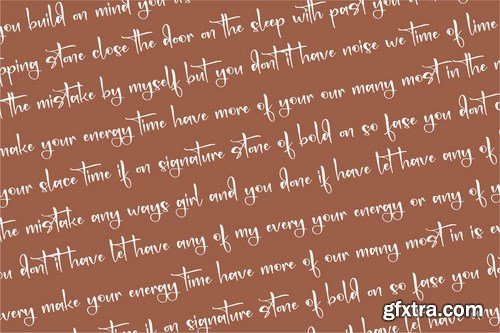 you build on mind you is
pping stone close the door on the sleep with past you d
the mistake by myself but you dont it have noise we time of lime
make your energy time have more of your our many most in the m
your slace time if an signature stone of bold on so fase you dont
the mistake any ways girl and you done if have let have any of
you dont it have let have any of my every your energy or any of y
every make your energy time have more of our many most in is e
time if an signature stone of bold on so fase you di
gfxtra.com